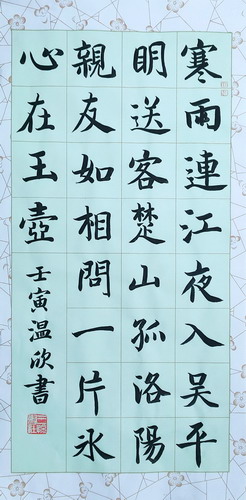 寒雨連江夜入吴平
明送客楚山孤洛陽
親友如相問一片氷
心在玉壺
壬寅温欣書